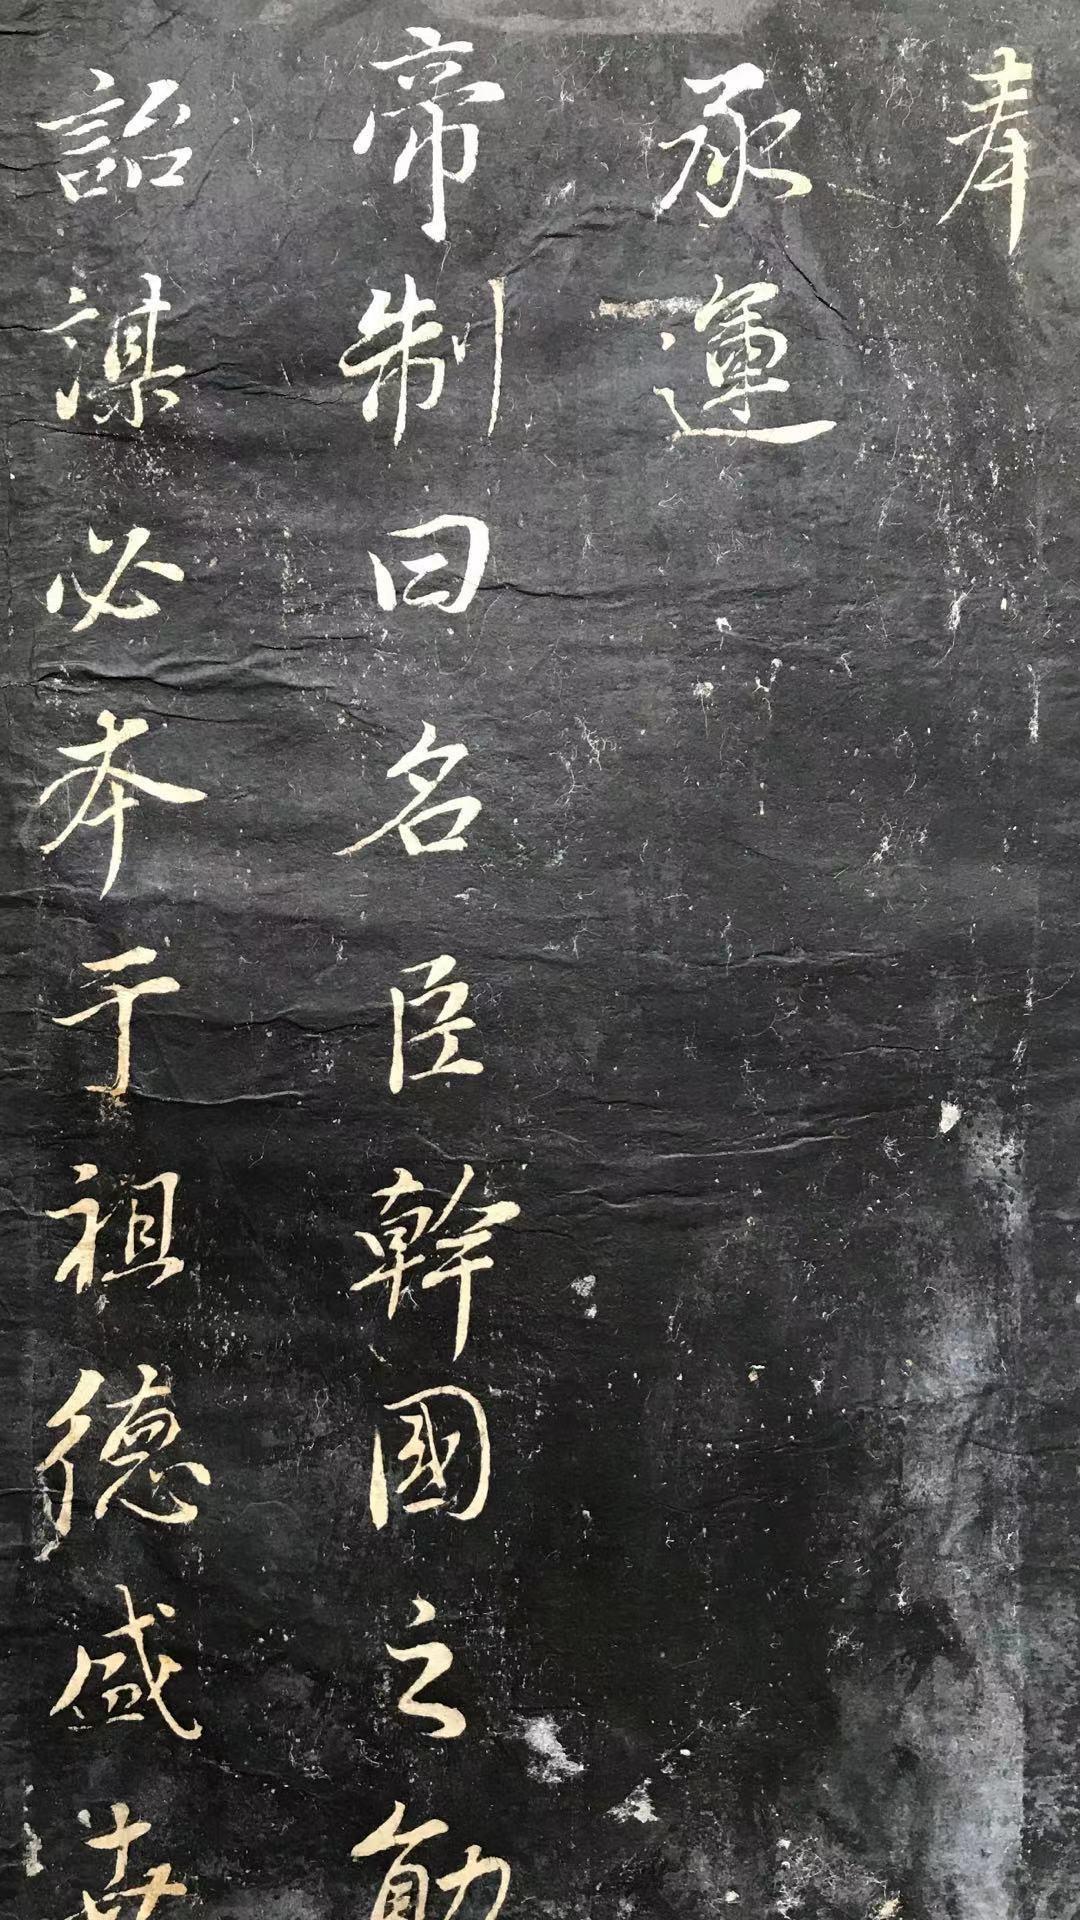 奉
承運
帝制曰名臣幹國之
詒謀必本于祖德盛